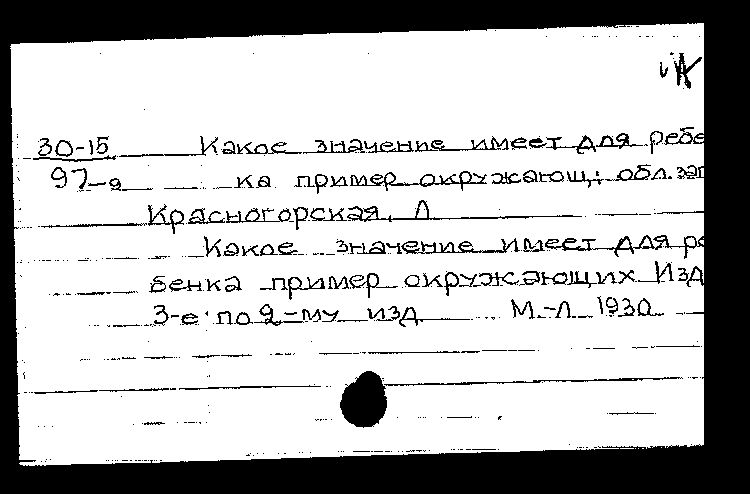 30-15 Какое значение имеет для ребе
97-а ка пример окружающ,: обл. заг
Красногорская, Л
Какое значение имеет для ре
бенка пример окружающих Изд
3-е по 2-му изд М.-Л 1930